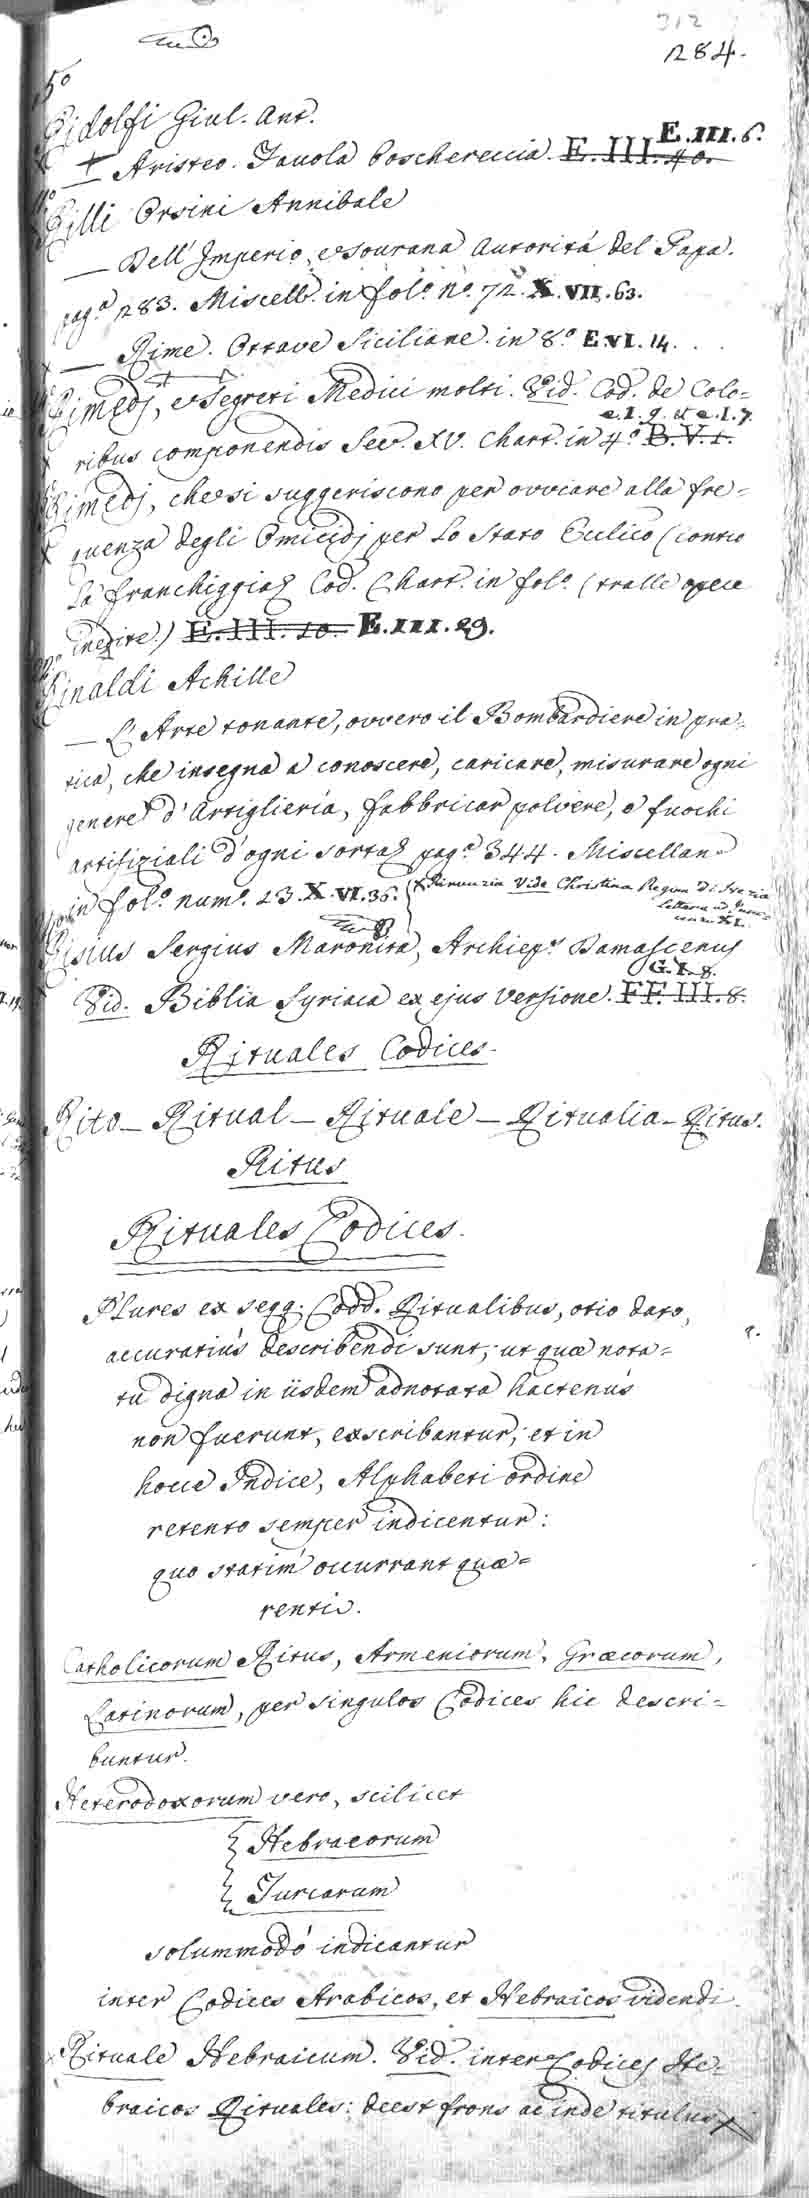 312
284.
5º
Ridolfi Giul. Ant.
Aristeo. Favola Boschereccia. E. III. 40. E. III. 6.
Rilli Orsini Annibale
— Dell' Imperio, e sovrana autorità del Papa.
pag.ª 283. Miscell. in fol.º nº. 72. X. VII. 63.
— Rime. Ottave Siciliane. in 8.º E. VI. 14.
Rimedj, e Segreti Medici molti. Vid. Cod. de Colo=
e. I. 9. et e. I. 7.
ribus componendis Sec. XV. Chart. in 4.º B. V. 1.
Rimedj, che si suggeriscono per ovviare alla fre=
quenza degli Omicidj per lo Stato Ecclico (contro
la franchiggia) Cod. Chart. in fol.º (tralle opere
inedite.) E. III. 10. E. III. 29.
Rinaldi Achille
— L'Arte tonante, ovvero il Bombardiere in pra=
tica, che insegna a conoscere, caricare, misurare ogni
genere d'Artiglieria, fabbricar polvere, e fuochi
artifiziali d'ogni sorta pag.ª 344. Miscellan.
in fol.º num.º 23. X. VI. 36.
Rinunzia Vide Christina Regina di Svezia
lettera ad Inno=
cenzo XI.
Risius Sergius Maronita, Archiep.s Damascenus
G. I. 8.
Vid. Biblia Syriaca ex ejus versione. FF. III. 8.
Rituales Codices.
Rito – Ritual – Rituale – Ritualia – Ritus.
Ritus
Rituales Codices.
Plures ex segg. Codd. Ritualibus, otio dato,
accuratiùs describendi sunt; ut quæ nota=
tu digna in iisdem adnotata hactenùs
non fuerunt, exscribantur; et in
hocce Indice, Alphabeti ordine
retento semper indicentur:
quo statim occurrant quæ=
renti.
Catholicorum Ritus, Armeniorum, Græcorum,
Latinorum, per singulos Codices hic descri=
buntur.
Heterodoxorum vero, scilicet
Hebraeorum
Turcarum
solummodò indicantur
inter Codices Arabicos, et Hebraicos videndi.
Rituale Hebraicum. Vid. inter Codices He=
braicos Rituales: deest frons ac inde titulus